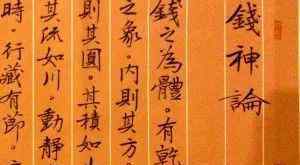 錢神論
錢之為體。有乾
之象。內則其方。
則其圓。其積如山
其流如川。動靜
時。行藏有節。